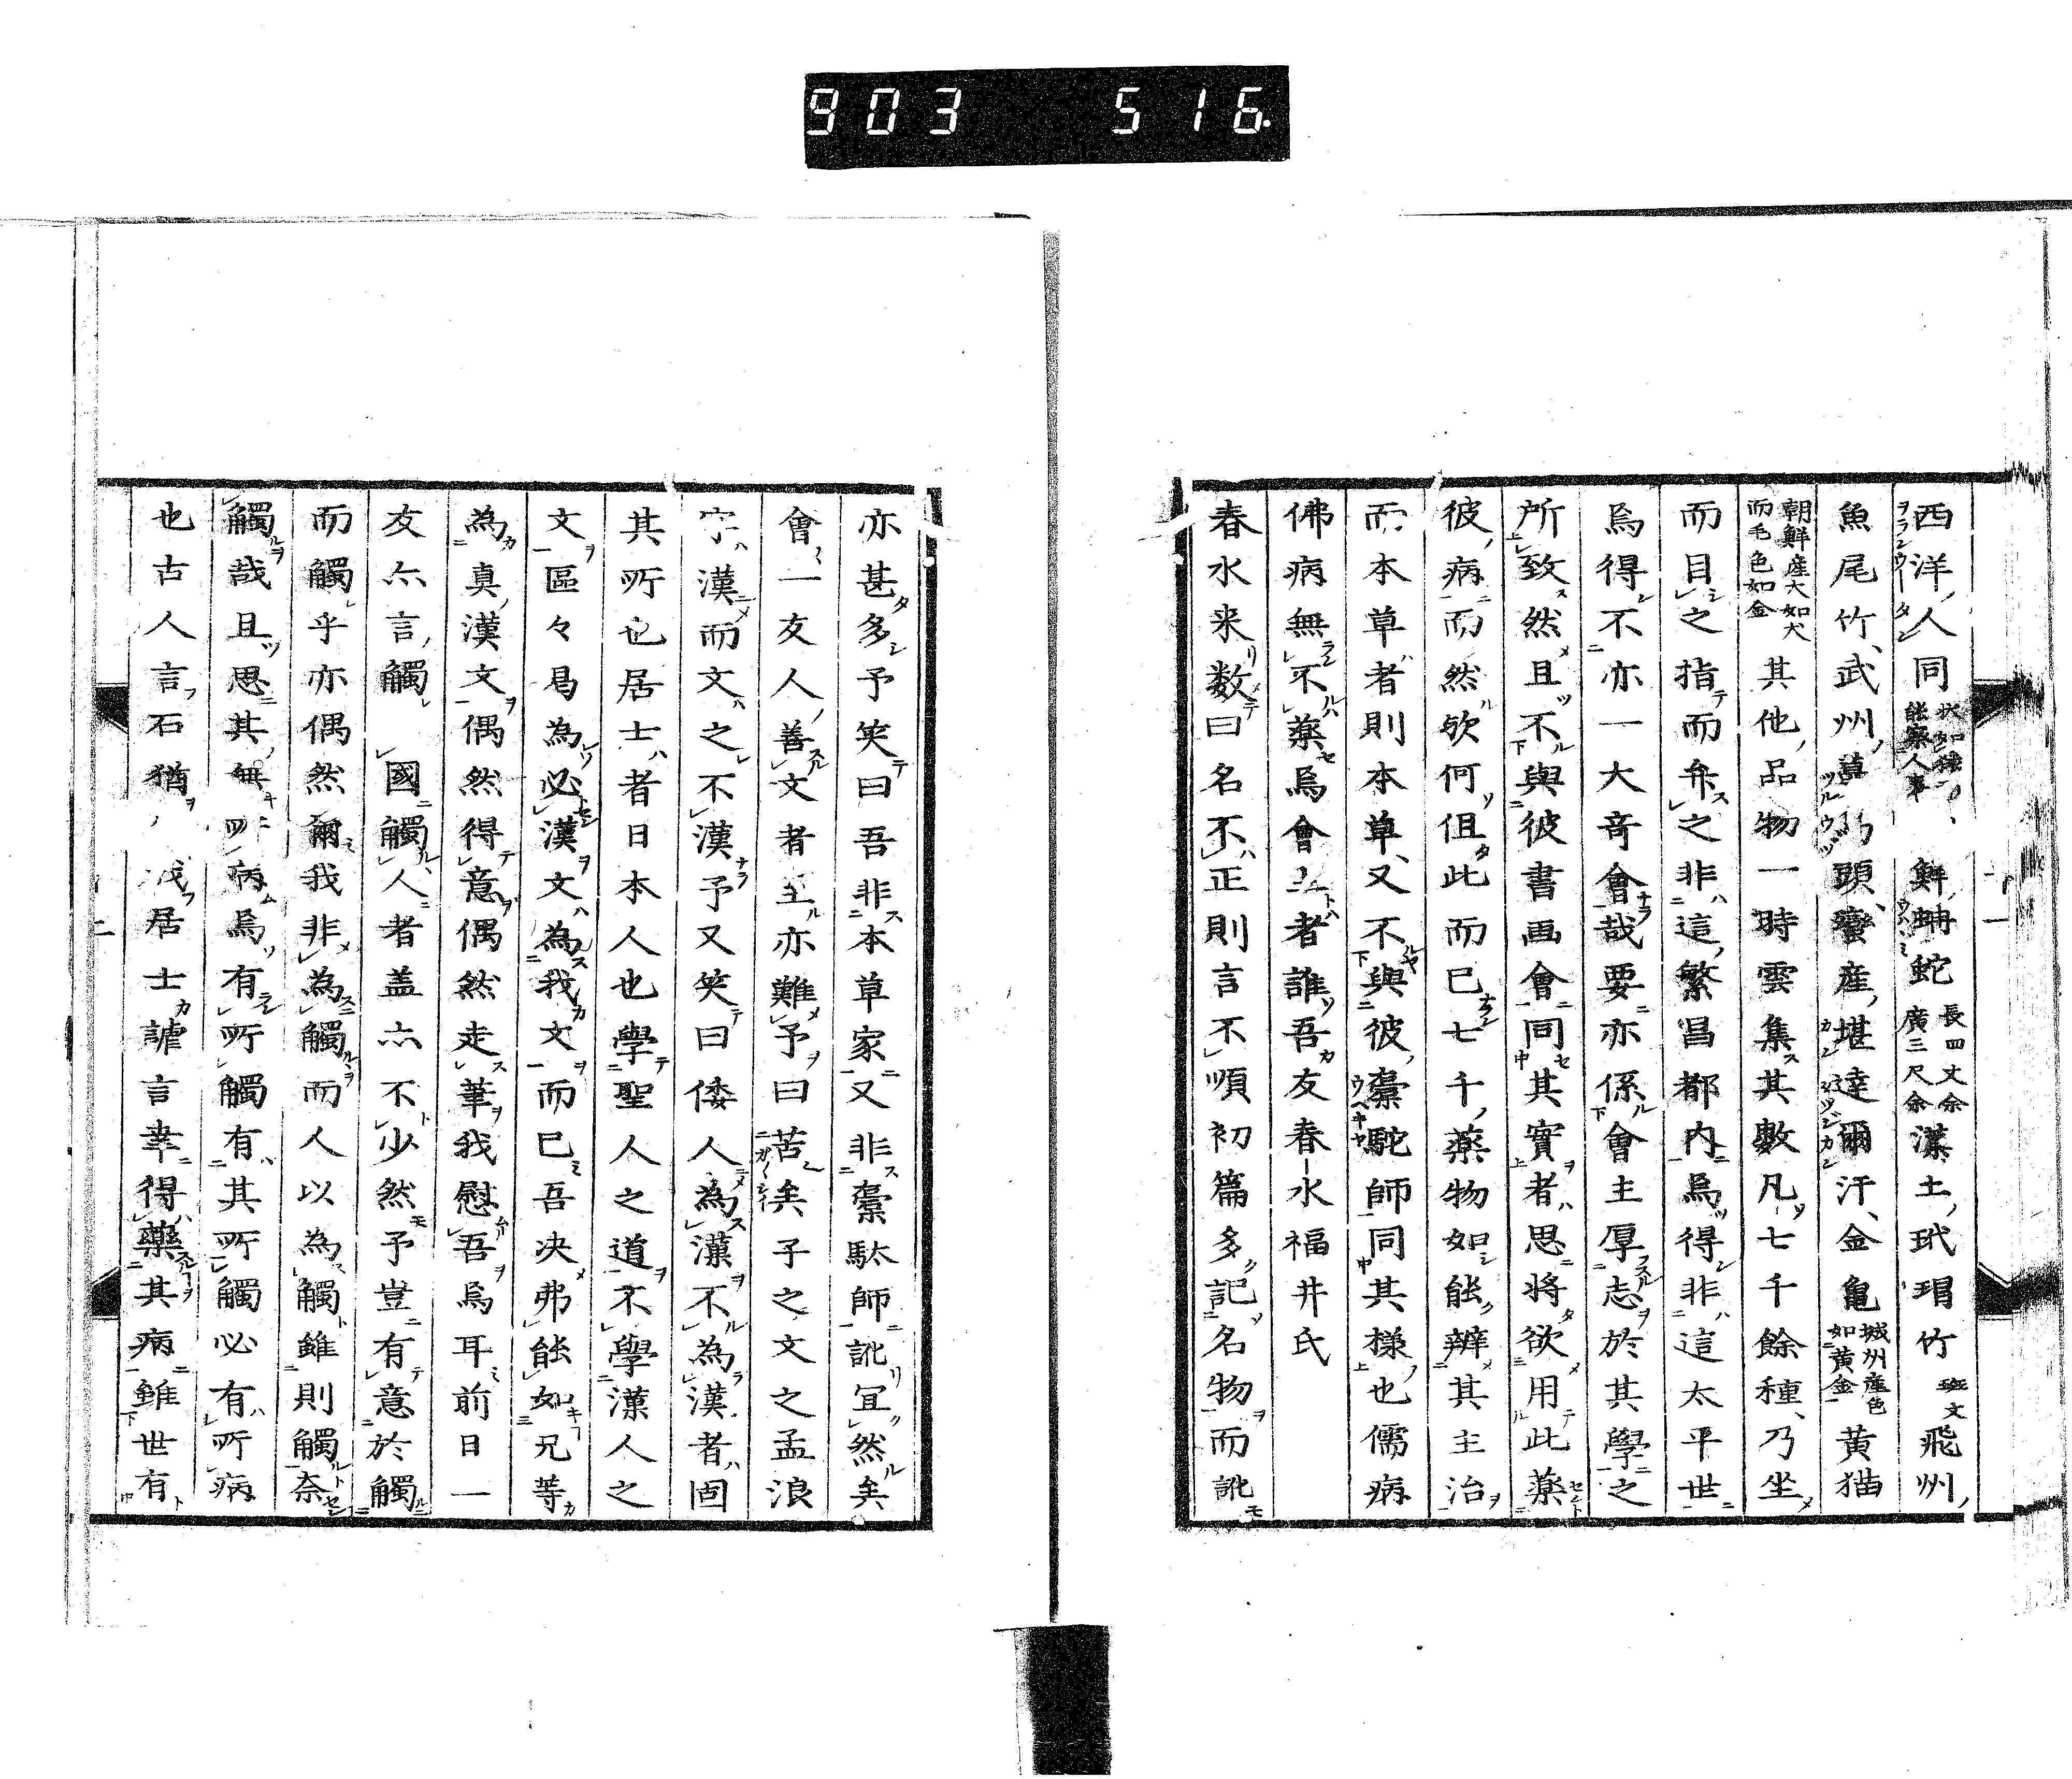 903 516
西洋人同状如猿能察人事鮮蚺蛇長四丈余廣三尺余漢土玳瑁竹斑文飛州
魚尾竹武州頭蠻産堪達爾汗金龜城州産色如黄金黄猫
朝鮮産大如犬而毛色如金其他品物一時雲集其數凡七千餘種乃坐
而目之指而弁之非這繁昌都内烏得非這太平世
烏得不亦一大奇會哉要亦係會主厚志於其學之
所致然且不與彼書画會同其實者思將欲用此藥
彼病而然欤何伹此而已七千藥物如能辨其主治
而本草者則本草又不與彼橐駝師同其樣也儒病
佛病無不藥烏會主者誰吾友春水福井氏
春水来数曰名不正則言不順初篇多記名物而訛
亦甚多予笑曰吾非本草家又非橐駄師訛冝然矣
會一友人善文者至亦難予曰苦矣子之文之孟浪
字漢而文之不漢予又笑曰倭人為漢不為漢者固
其所也居士者日本人也學聖人之道不學漢人之
文區々曷為必漢文為我文而已吾决弗能如兄等
為真漢文偶然得意偶然走筆我慰吾烏耳前日一
友亦言觸國觸人者盖亦不少然予豈有意於觸
而觸乎亦偶然爾我非為觸而人以為觸雖則觸奈
觸哉且思其無所病烏有所觸有其所觸必有所病
也古人言石猶居士謔言幸得藥其病雖世有
二